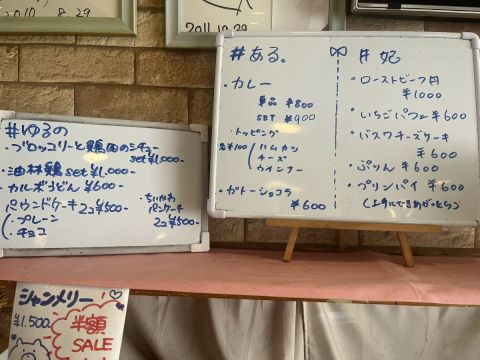 2010 8.29
2011.10.29
#ゆるの
・ブロッコリーと鶏肉のシチュー
set ¥1,000-
・油林鶏 set ¥1,000-
・カルボうどん ¥600-
パウンドケーキ 2コ ¥500-
・プレーン
・チョコ
ちいかわ
パンケーキ
2コ ¥500-
#ある。
・カレー
単品 ¥800
SET ¥900
・トッピング
各¥100
ハムカツ
チーズ
ウインナー
・ガトーショコラ
¥600
#妃
・ローストビーフ丼
¥1000
・いちごパフェ ¥600
・バスクチーズケーキ
¥600
・ぷりん ¥600
・プリンパイ ¥600
シャンメリー
¥1,500.
半額
SALE